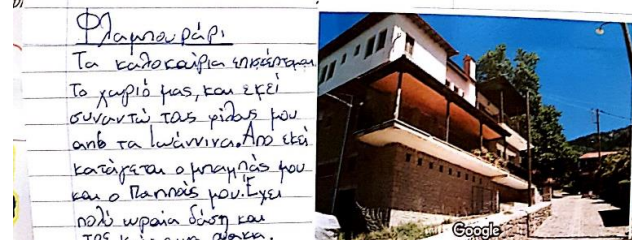 Φλαμπουράρι
Τα καλοκαίρια επισκέπτομαι
το χωριό μας, και εκεί
συναντώ τους φίλους μου
από τα Ιωάννινα. Από εκεί
κατάγεται ο μπαμπάς μου
και ο Παππάς μου. Έχει
πολύ ωραία δάση και
Google